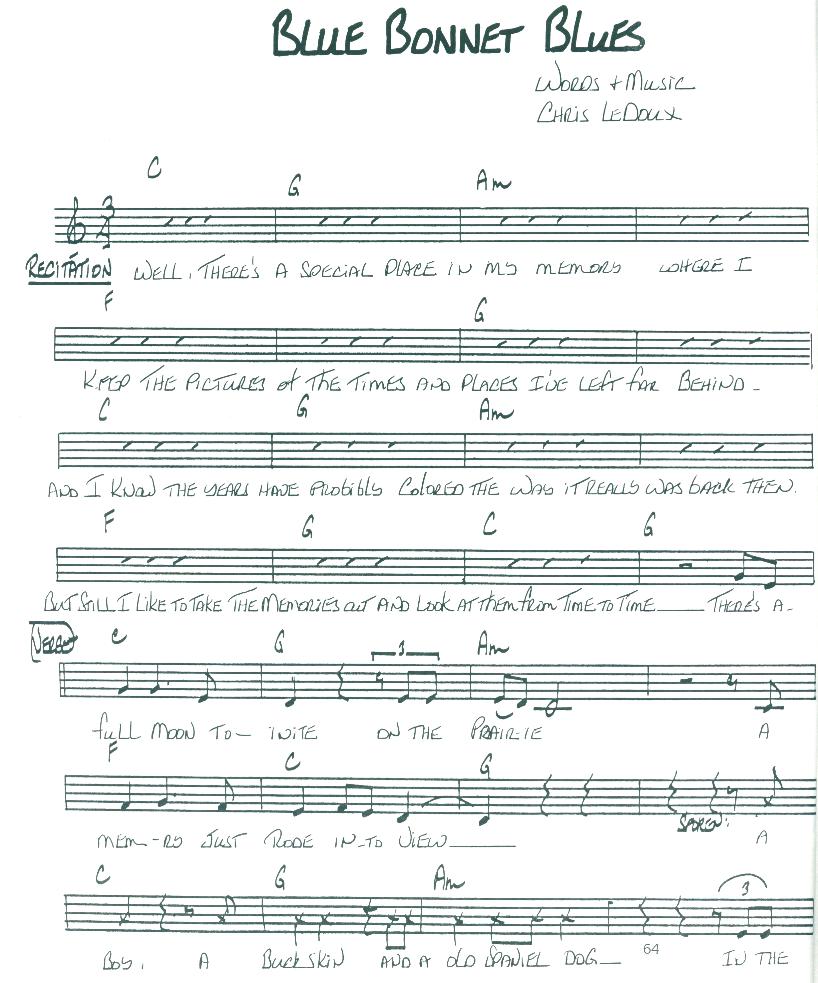 BLUE BONNET BLUES
WORDS + MUSIC
CHRIS LEDOUX
C G Am
3
4
RECITATION WELL, THERE'S A SPECIAL PLACE IN MY MEMORY WHERE I
F G
KEEP THE PICTURES of THE TIMES AND PLACES I'VE LEFT FAR BEHIND -
C G Am
AND I KNOW THE YEARS HAVE PROBIBLY COLORED THE WAY iT REALLY WAS BACK THEN.
F G C G
BUT STILL I LIKE TO TAKE THE MEMORIES OUT AND LOOK AT THEM FROM TIME TO TIME ___ THERE'S A -
VERSE C G 3 Am
FULL MOON TO- NITE ON THE PRAIR-IE A
F C G
MEM-RY JUST RODE IN-TO VIEW___
SPOKEN: A
C G Am 3
BOY, A BUCKSKIN AND A OLD SPANIEL DOG_ 64 IN THE